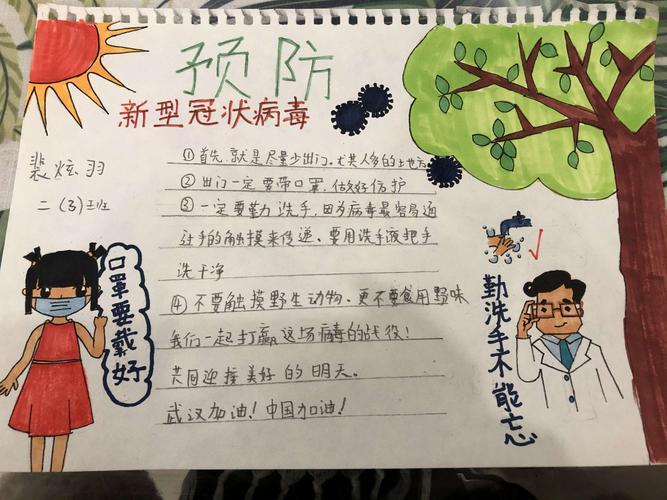 预防
新型冠状病毒
裴炫羽
二(3)班
①首先,就是尽量少出门,尤其人多的土地方
②出门一定要带口罩,做好好防护
③一定要勤洗手,因为病毒最容易通
过手的触摸来传递、要用洗手液把手
洗干净
④不要触摸野生动物、更不要食用野味
我们一起打赢这场病毒的战役!
共同迎接美好的明天。
武汉加油!中国加油!
口罩要戴好
勤洗手不能忘